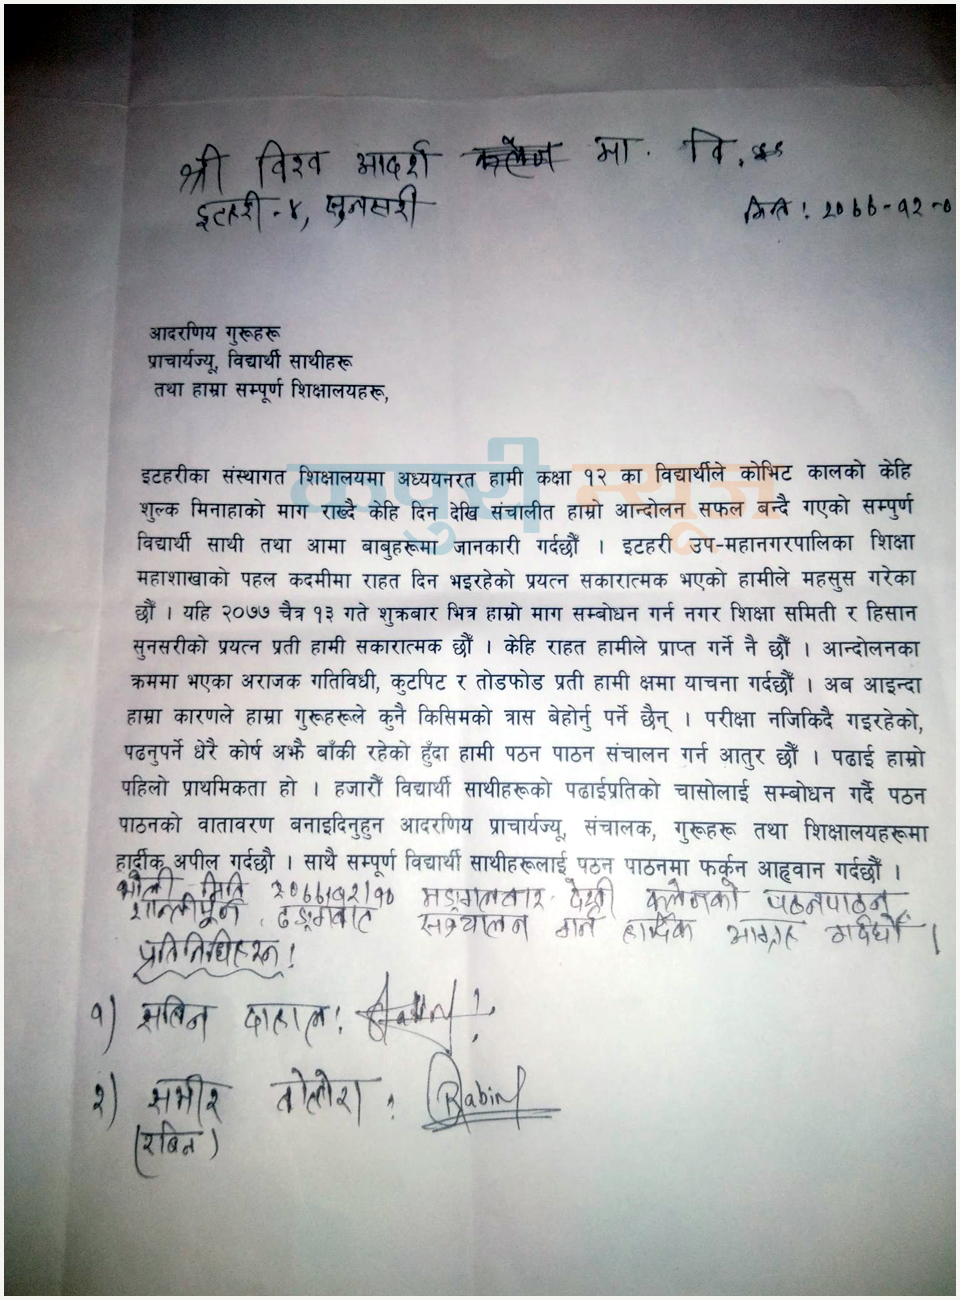 श्री विश्व आदर्श कलेज मा. वि.
इटहरी-४, सुनसरी
मिति: २०७७-१२-०
आदरणिय गुरूहरू
प्राचार्यज्यू, विद्यार्थी साथीहरू
तथा हाम्रा सम्पूर्ण शिक्षालयहरू,
कपुरी न्यूज
इटहरीका संस्थागत शिक्षालयमा अध्ययनरत हामी कक्षा १२ का विद्यार्थीले कोभिट कालको केहि
शुल्क मिनाहाको माग राख्दै केहि दिन देखि संचालीत हाम्रो आन्दोलन सफल बन्दै गएको सम्पुर्ण
विद्यार्थी साथी तथा आमा बाबुहरूमा जानकारी गर्दछौँ । इटहरी उप-महानगरपालिका शिक्षा
महाशाखाको पहल कदमीमा राहत दिन भइरहेको प्रयत्न सकारात्मक भएको हामीले महसुस गरेका
छौँ । यहि २०७७ चैत्र १३ गते शुक्रबार भित्र हाम्रो माग सम्बोधन गर्न नगर शिक्षा समिती र हिसान
सुनसरीको प्रयत्न प्रती हामी सकारात्मक छौँ । केहि राहत हामीले प्राप्त गर्ने नै छौँ । आन्दोलनका
क्रममा भएका अराजक गतिविधी, कुटपिट र तोडफोड प्रती हामी क्षमा याचना गर्दछौँ । अब आइन्दा
हाम्रा कारणले हाम्रा गुरूहरूले कुनै किसिमको त्रास बेहोर्नु पर्ने छैन् । परीक्षा नजिकिदै गइरहेको,
पढनुपर्ने धेरै कोर्ष अझै बाँकी रहेको हुँदा हामी पठन पाठन संचालन गर्न आतुर छौँ । पढाई हाम्रो
पहिलो प्राथमिकता हो । हजारौँ विद्यार्थी साथीहरूको पढाईप्रतिको चासोलाई सम्बोधन गर्दै पठन
पाठनको वातावरण बनाइदिनुहुन आदरणिय प्राचार्यज्यू, संचालक, गुरूहरू तथा शिक्षालयहरूमा
हार्दीक अपील गर्दछौ । साथै सम्पूर्ण विद्यार्थी साथीहरूलाई पठन पाठनमा फर्कून आहृवान गर्दछौँ ।
भोली मिति २०७७।१२।१० मङ्गलवार देखी कलेजको पठनपाठन
शान्तीपूर्न ढङ्गबाट सञ्चालन गर्न हार्दिक आग्रह गर्दछौँ ।
प्रतिनिधिहरू!
१) सबिन दाहाल:
२) समीर : Rabin
(रबिन)